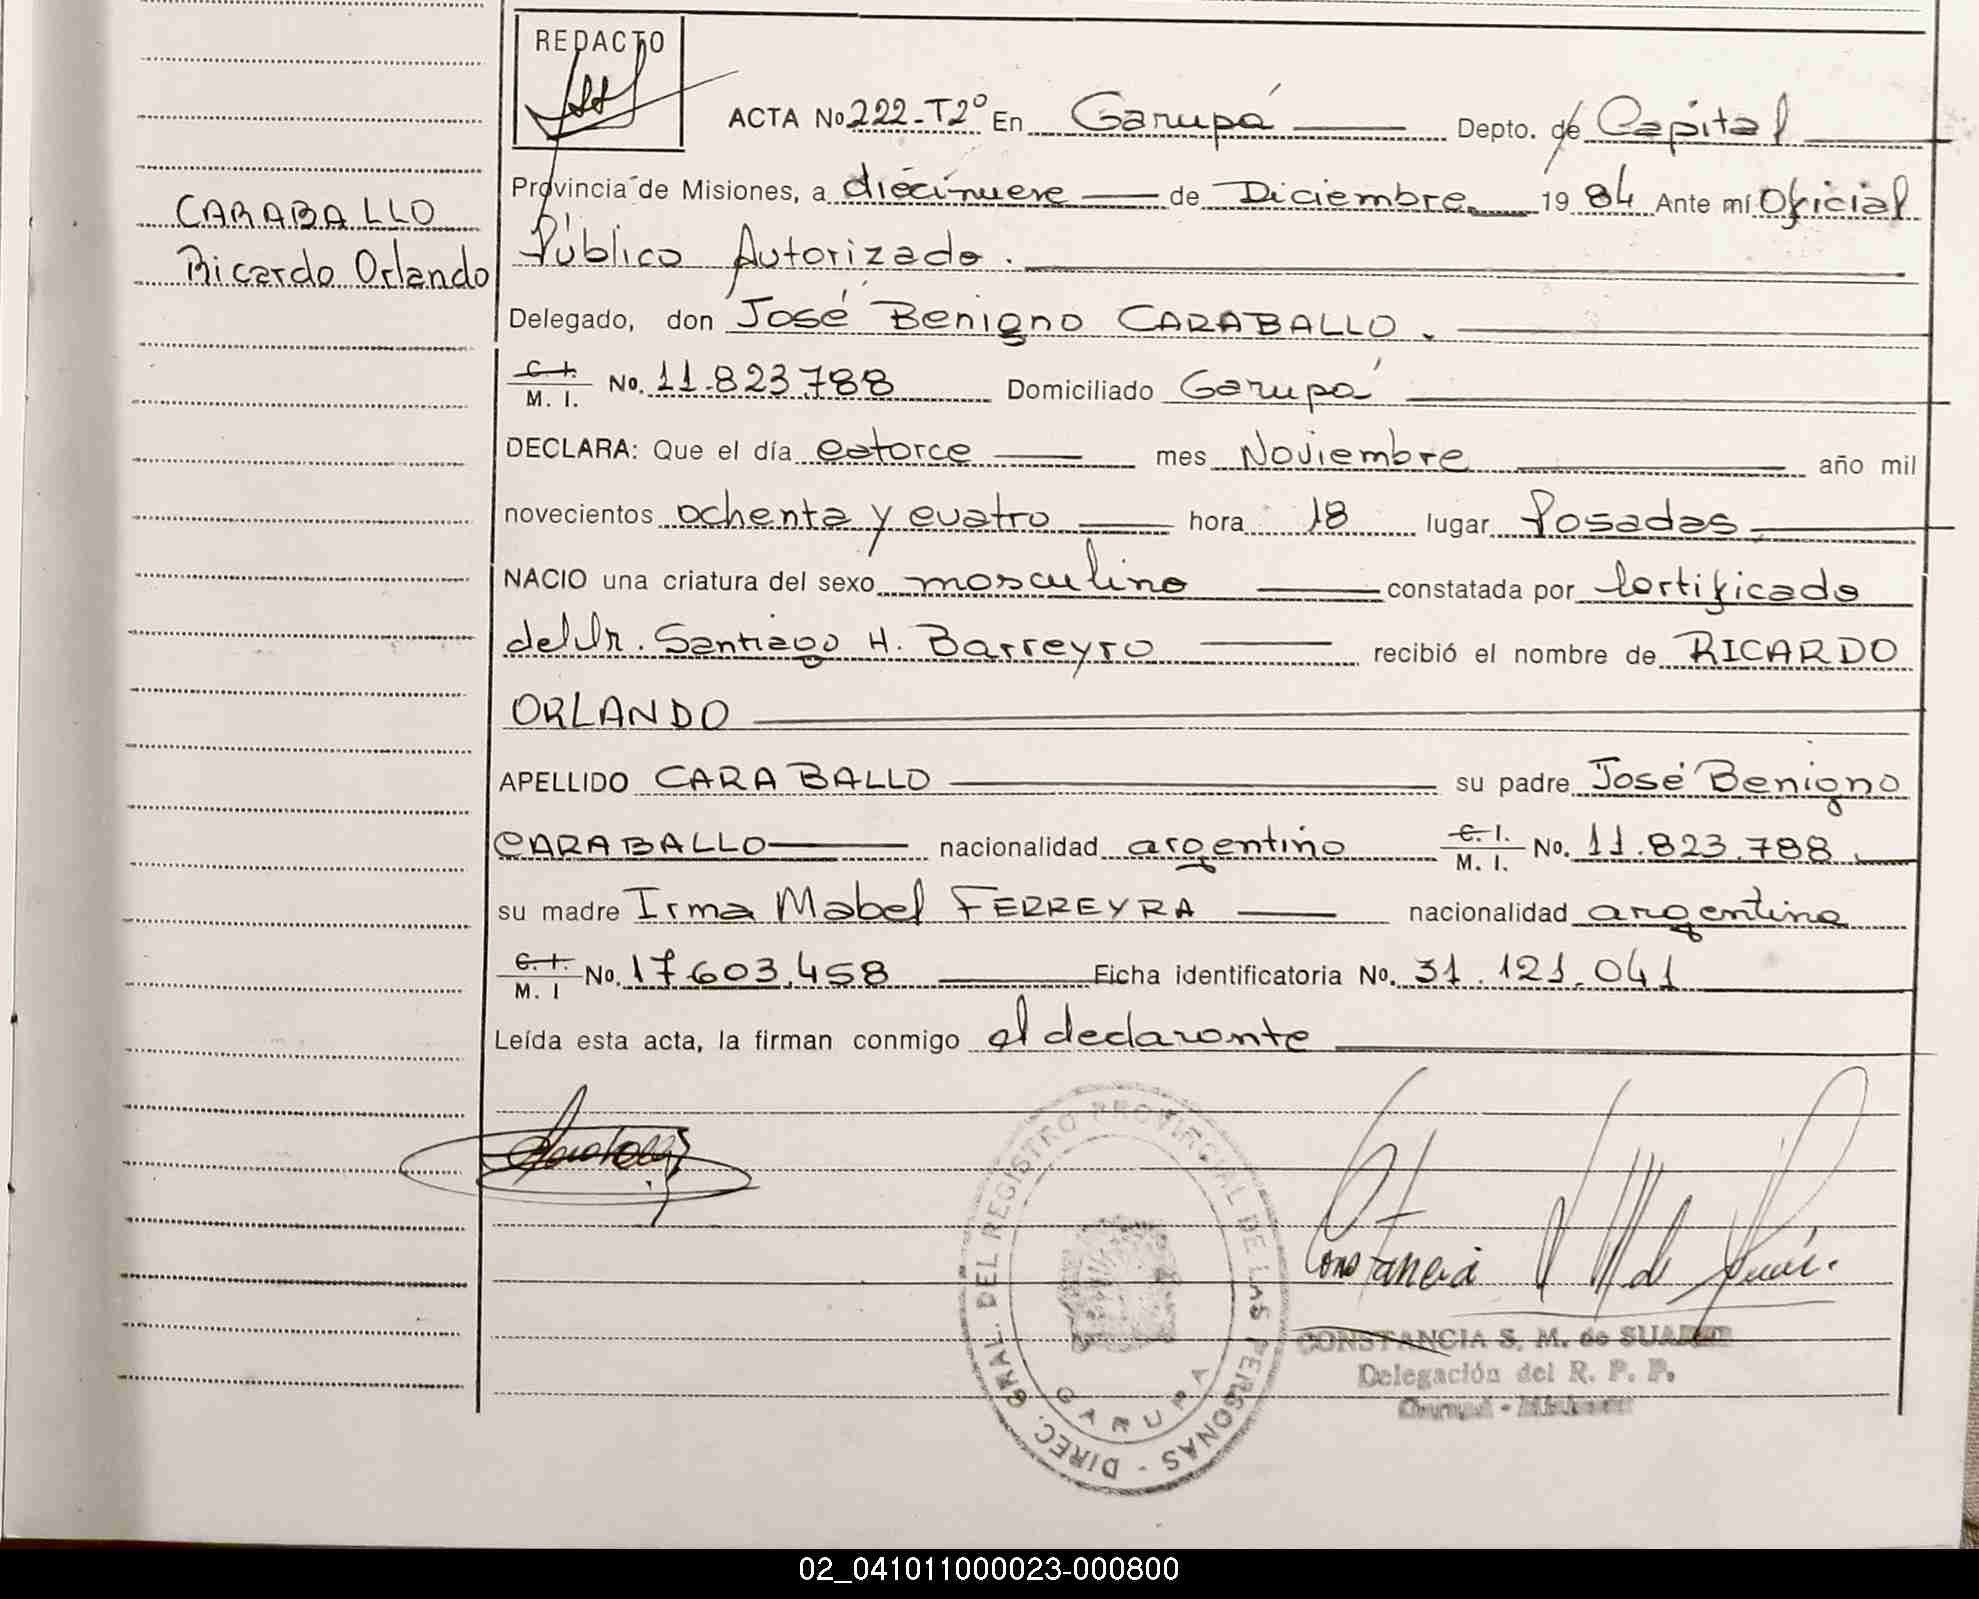 REDACTO
ACTA No 222-T2º En Garupá Depto. de Capital
CARABALLO
Ricardo Orlando
Provincia de Misiones, a diecinueve de Diciembre 1984 Ante mí Oficial
Público Autorizado.
Delegado, don José Benigno CARABALLO.
C. I. / M. I. No. 11.823.788 Domiciliado Garupá
DECLARA: Que el día catorce mes Noviembre año mil
novecientos ochenta y cuatro hora 18 lugar Posadas
NACIO una criatura del sexo masculino constatada por Certificado
del Dr. Santiago H. Barreyro recibió el nombre de RICARDO
ORLANDO
APELLIDO CARABALLO su padre José Benigno
CARABALLO nacionalidad argentino C. I. / M. I. No. 11.823.788.
su madre Irma Mabel FERREYRA nacionalidad argentina
C. I. / M. I No. 17.603.458 Ficha identificatoria No. 31.121.041
Leída esta acta, la firman conmigo el declarante
DIREC. GRAL. DEL REGISTRO PROVINCIAL DE LAS PERSONAS -
GARUPA
Constancia de
CONSTANCIA S. M. de SUAREZ
Delegación del R. P. P.
02_041011000023-000800